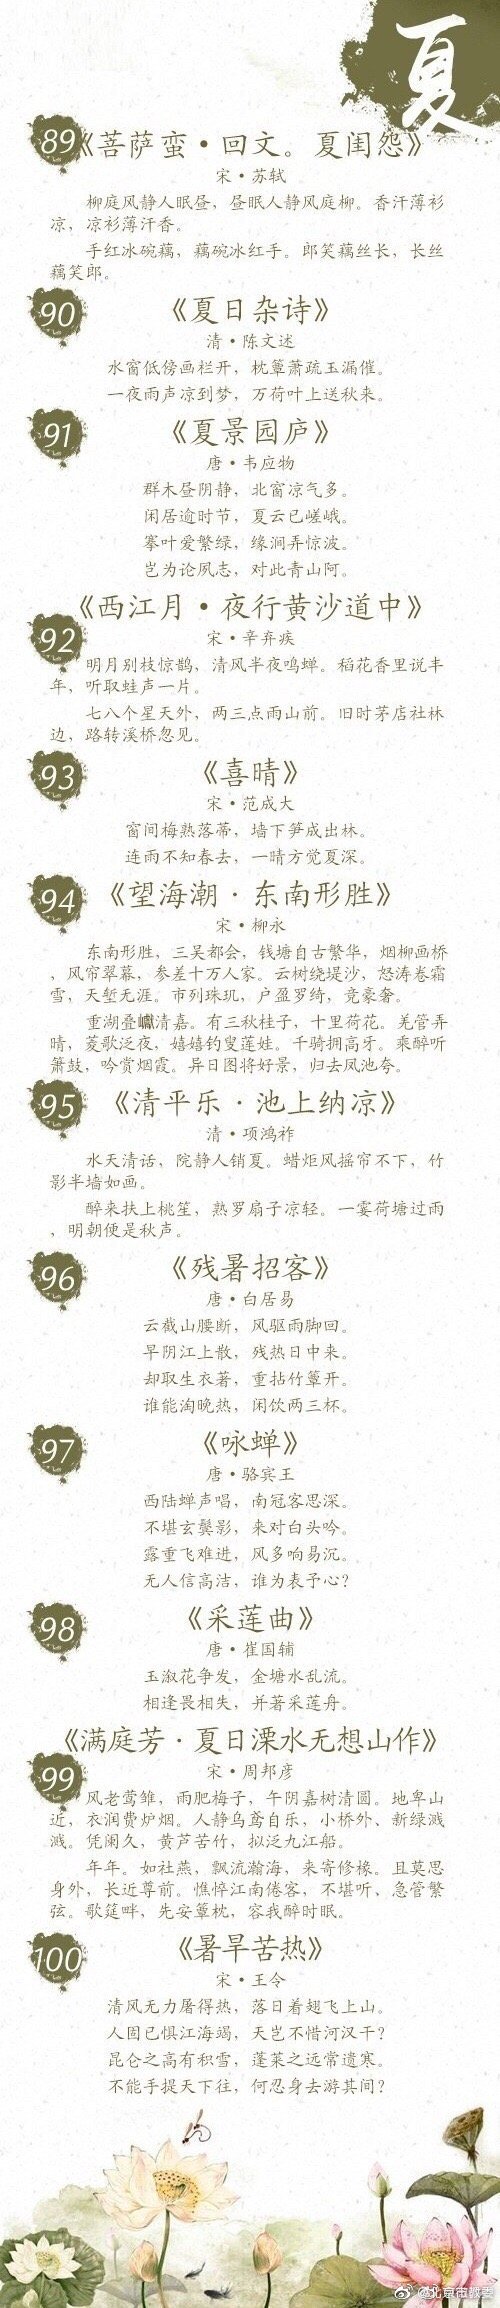 夏
89
《菩萨蛮·回文。夏闺怨》
宋·苏轼
柳庭风静人眠昼，昼眠人静风庭柳。香汗薄衫
凉，凉衫薄汗香。
手红冰碗藕，藕碗冰红手。郎笑藕丝长，长丝
藕笑郎。
90
《夏日杂诗》
清·陈文述
水窗低傍画栏开，枕簟萧疏玉漏催。
一夜雨声凉到梦，万荷叶上送秋来。
91
《夏景园庐》
唐·韦应物
群木昼阴静，北窗凉气多。
闲居逾时节，夏云已嵯峨。
搴叶爱繁绿，缘涧弄惊波。
岂为论夙志，对此青山阿。
《西江月·夜行黄沙道中》
92
宋·辛弃疾
明月别枝惊鹊，清风半夜鸣蝉。稻花香里说丰
年，听取蛙声一片。
七八个星天外，两三点雨山前。旧时茅店社林
边，路转溪桥忽见。
93
《喜晴》
宋·范成大
窗间梅熟落蒂，墙下笋成出林。
连雨不知春去，一晴方觉夏深。
94
《望海潮·东南形胜》
宋·柳永
东南形胜，三吴都会，钱塘自古繁华，烟柳画桥
，风帘翠幕，参差十万人家。云树绕堤沙，怒涛卷霜
雪，天堑无涯。市列珠玑，户盈罗绮，竞豪奢。
重湖叠巘清嘉。有三秋桂子，十里荷花。羌管弄
晴，菱歌泛夜，嬉嬉钓叟莲娃。千骑拥高牙。乘醉听
箫鼓，吟赏烟霞。异日图将好景，归去凤池夸。
95
《清平乐·池上纳凉》
清·项鸿祚
水天清话，院静人销夏。蜡炬风摇帘不下，竹
影半墙如画。
醉来扶上桃笙，熟罗扇子凉轻。一霎荷塘过雨
，明朝便是秋声。
96
《残暑招客》
唐·白居易
云截山腰断，风驱雨脚回。
早阴江上散，残热日中来。
却取生衣著，重拈竹簟开。
谁能淘晚热，闲饮两三杯。
97
《咏蝉》
唐·骆宾王
西陆蝉声唱，南冠客思深。
不堪玄鬓影，来对白头吟。
露重飞难进，风多响易沉。
无人信高洁，谁为表予心？
98
《采莲曲》
唐·崔国辅
玉溆花争发，金塘水乱流。
相逢畏相失，并著采莲舟。
《满庭芳·夏日溧水无想山作》
99
宋·周邦彦
风老莺雏，雨肥梅子，午阴嘉树清圆。地卑山
近，衣润费炉烟。人静乌鸢自乐，小桥外、新绿溅
溅。凭阑久，黄芦苦竹，拟泛九江船。
年年。如社燕，飘流瀚海，来寄修椽。且莫思
身外，长近尊前。憔悴江南倦客，不堪听、急管繁
弦。歌筵畔，先安簟枕，容我醉时眠。
100
《暑旱苦热》
宋·王令
清风无力屠得热，落日着翅飞上山。
人固已惧江海竭，天岂不惜河汉干？
昆仑之高有积雪，蓬莱之远常遗寒。
不能手提天下往，何忍身去游其间？
@北京市教委